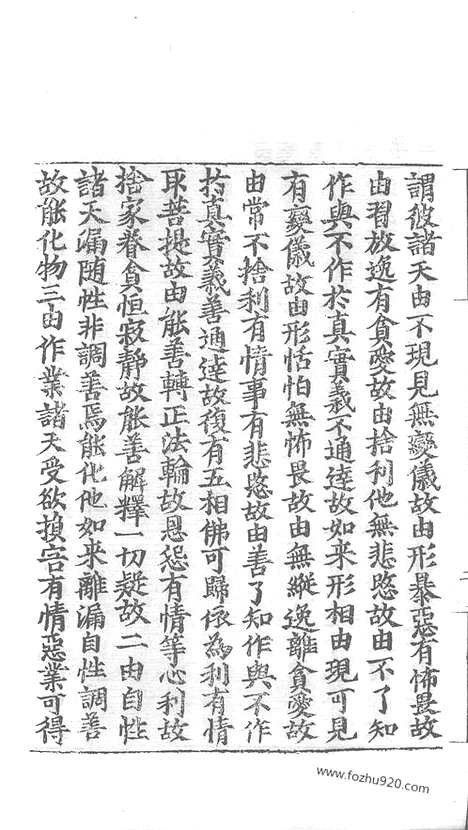 謂彼諸天由不現見無變儀故由形暴惡有怖畏故
由習放逸有貪愛故由捨利他無悲愍故由不了知
作與不作於真實義不通達故如来形相由現可見
有變儀故由形恬怕無怖畏故由無縱逸離貪愛故
由常不捨利有情事有悲愍故由善了知作與不作
於真實義善通達故復有五相佛可歸依為利有情
取菩提故由能善轉正法輪故恩怨有情等心利故
捨家眷貪恒寂静故能善解釋一切疑故二由自性
諸天漏随性非調善焉能化他如来離漏自性調善
故能化物三由作業諸天受欲損害有情惡業可得
www.fozhu920.com